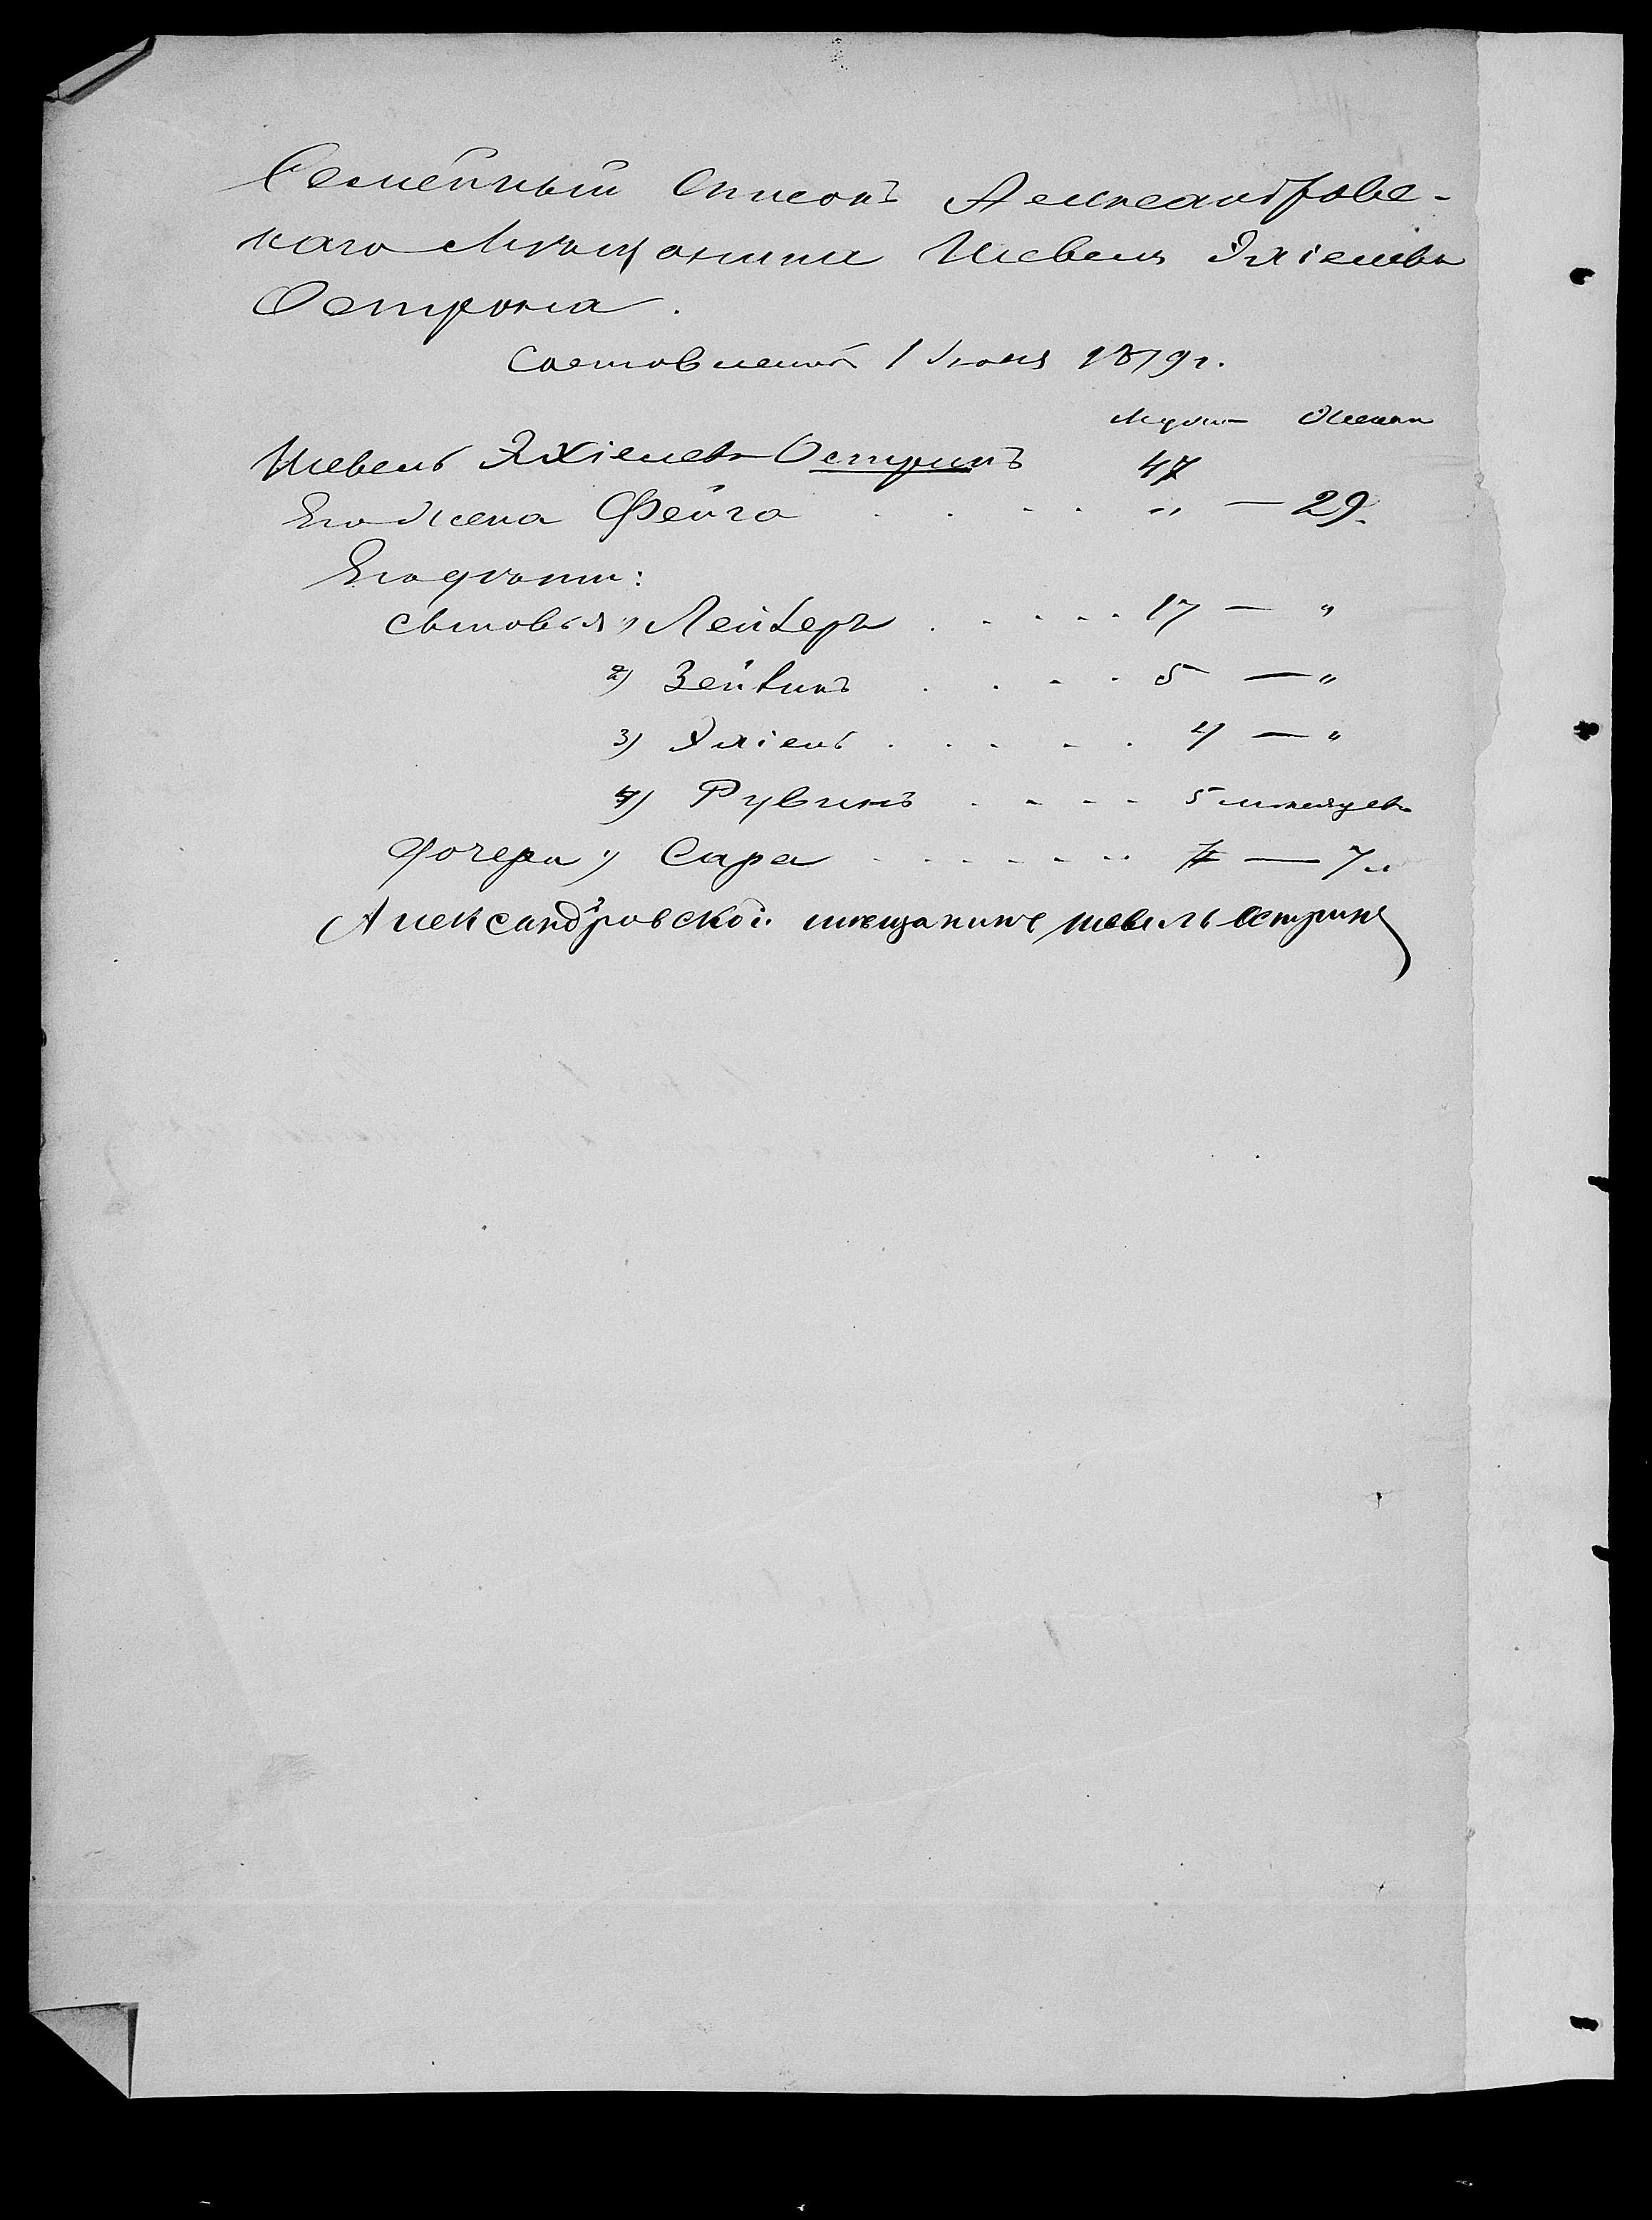 Семейный Списокъ Александровс-
каго Мѣщанина Шевеля Эхіелева
Острина.
Составленъ 1 Июня 1879 г.
Мужч. Женщ.
Шевель Эхіелевъ Остринъ 47
Его Жена Фейга . . . . „ — 29.
Его дѣти:
Сыновья 1) Лейзеръ . . . . . 17 — „
2) Зейликъ . . . . 5 — „
3) Эхіель . . . . . 4 — „
4) Рувинъ . . . . 5 мѣсяцевъ
Дочери 1) Сара . . . . . . . — 7 „
Александровской мещанинъ шевель Остринъ